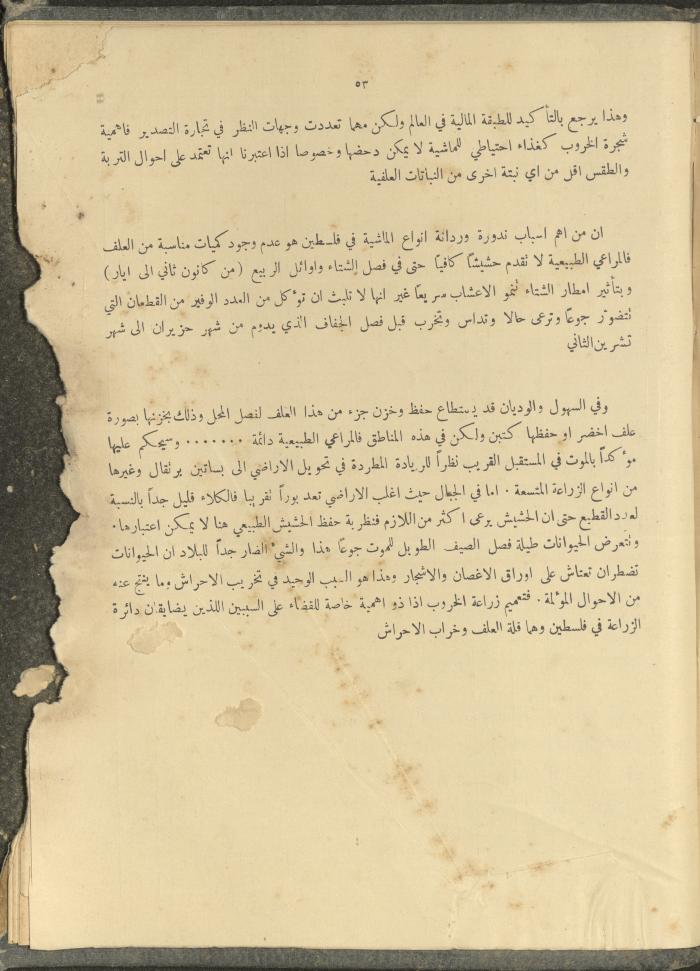 ٥٣
وهذا يرجع بالتأكيد للطبقة المالية في العالم ولكن مهما تعددت وجهات النظر في تجارة التصدير فاهمية
شجرة الخروب كغذاء احتياطي للماشية لا يمكن دحضها وخصوصا اذا اعتبرنا انها تعتمد على احوال التربة
والطقس اقل من اي نبتة اخرى من النباتات العلفية
ان من اهم اسباب ندورة وردائة انواع الماشية في فلسطين هو عدم وجود كميات مناسبة من العلف
فالمراعي الطبيعية لا تقدم حشيشاً كافياً حتى في فصل الشتاء واوائل الربيع (من كانون ثاني الى ايار)
وبتأثير امطار الشتاء تنمو الاعشاب سريعاً غير انها لا تلبث ان تؤكل من العدد الوفير من القطعان التي
تتضور جوعاً وترعى حالا وتداس وتخرب قبل فصل الجفاف الذي يدوم من شهر حزيران الى شهر
تشرين الثاني
وفي السهول والوديان قد يستطاع حفظ وخزن جزء من هذا العلف لفصل المحل وذلك بخزنها بصورة
علف اخضر او حفظها كتبن ولكن في هذه المناطق فالمراعي الطبيعية دائمة ....... وسيحكم عليها
مؤكداً بالموت في المستقبل القريب نظراً للزيادة المطردة في تحويل الاراضي الى بساتين برتقال وغيرها
من انواع الزراعة المتسعة . اما في الجبال حيث اغلب الاراضي تعد بوراً تقريبا فالكلاء قليل جداً بالنسبة
لعدد القطيع حتى ان الحشيش يرعى اكثر من اللازم فنظرية حفظ الحشيش الطبيعي هنا لا يمكن اعتبارها .
وتتعرض الحيوانات طيلة فصل الصيف الطويل للموت جوعاً هذا والشيء الضار جداً للبلاد ان الحيوانات
تضطران تعتاش على اوراق الاغصان والاشجار وهذا هو السبب الوحيد في تخريب الاحراش وما ينتج عنه
من الاحوال المؤلمة . فتعميم زراعة الخروب اذا ذو اهمية خاصة للقضاء على السببين اللذين يضايقان دائرة
الزراعة في فلسطين وهما قلة العلف وخراب الاحراش